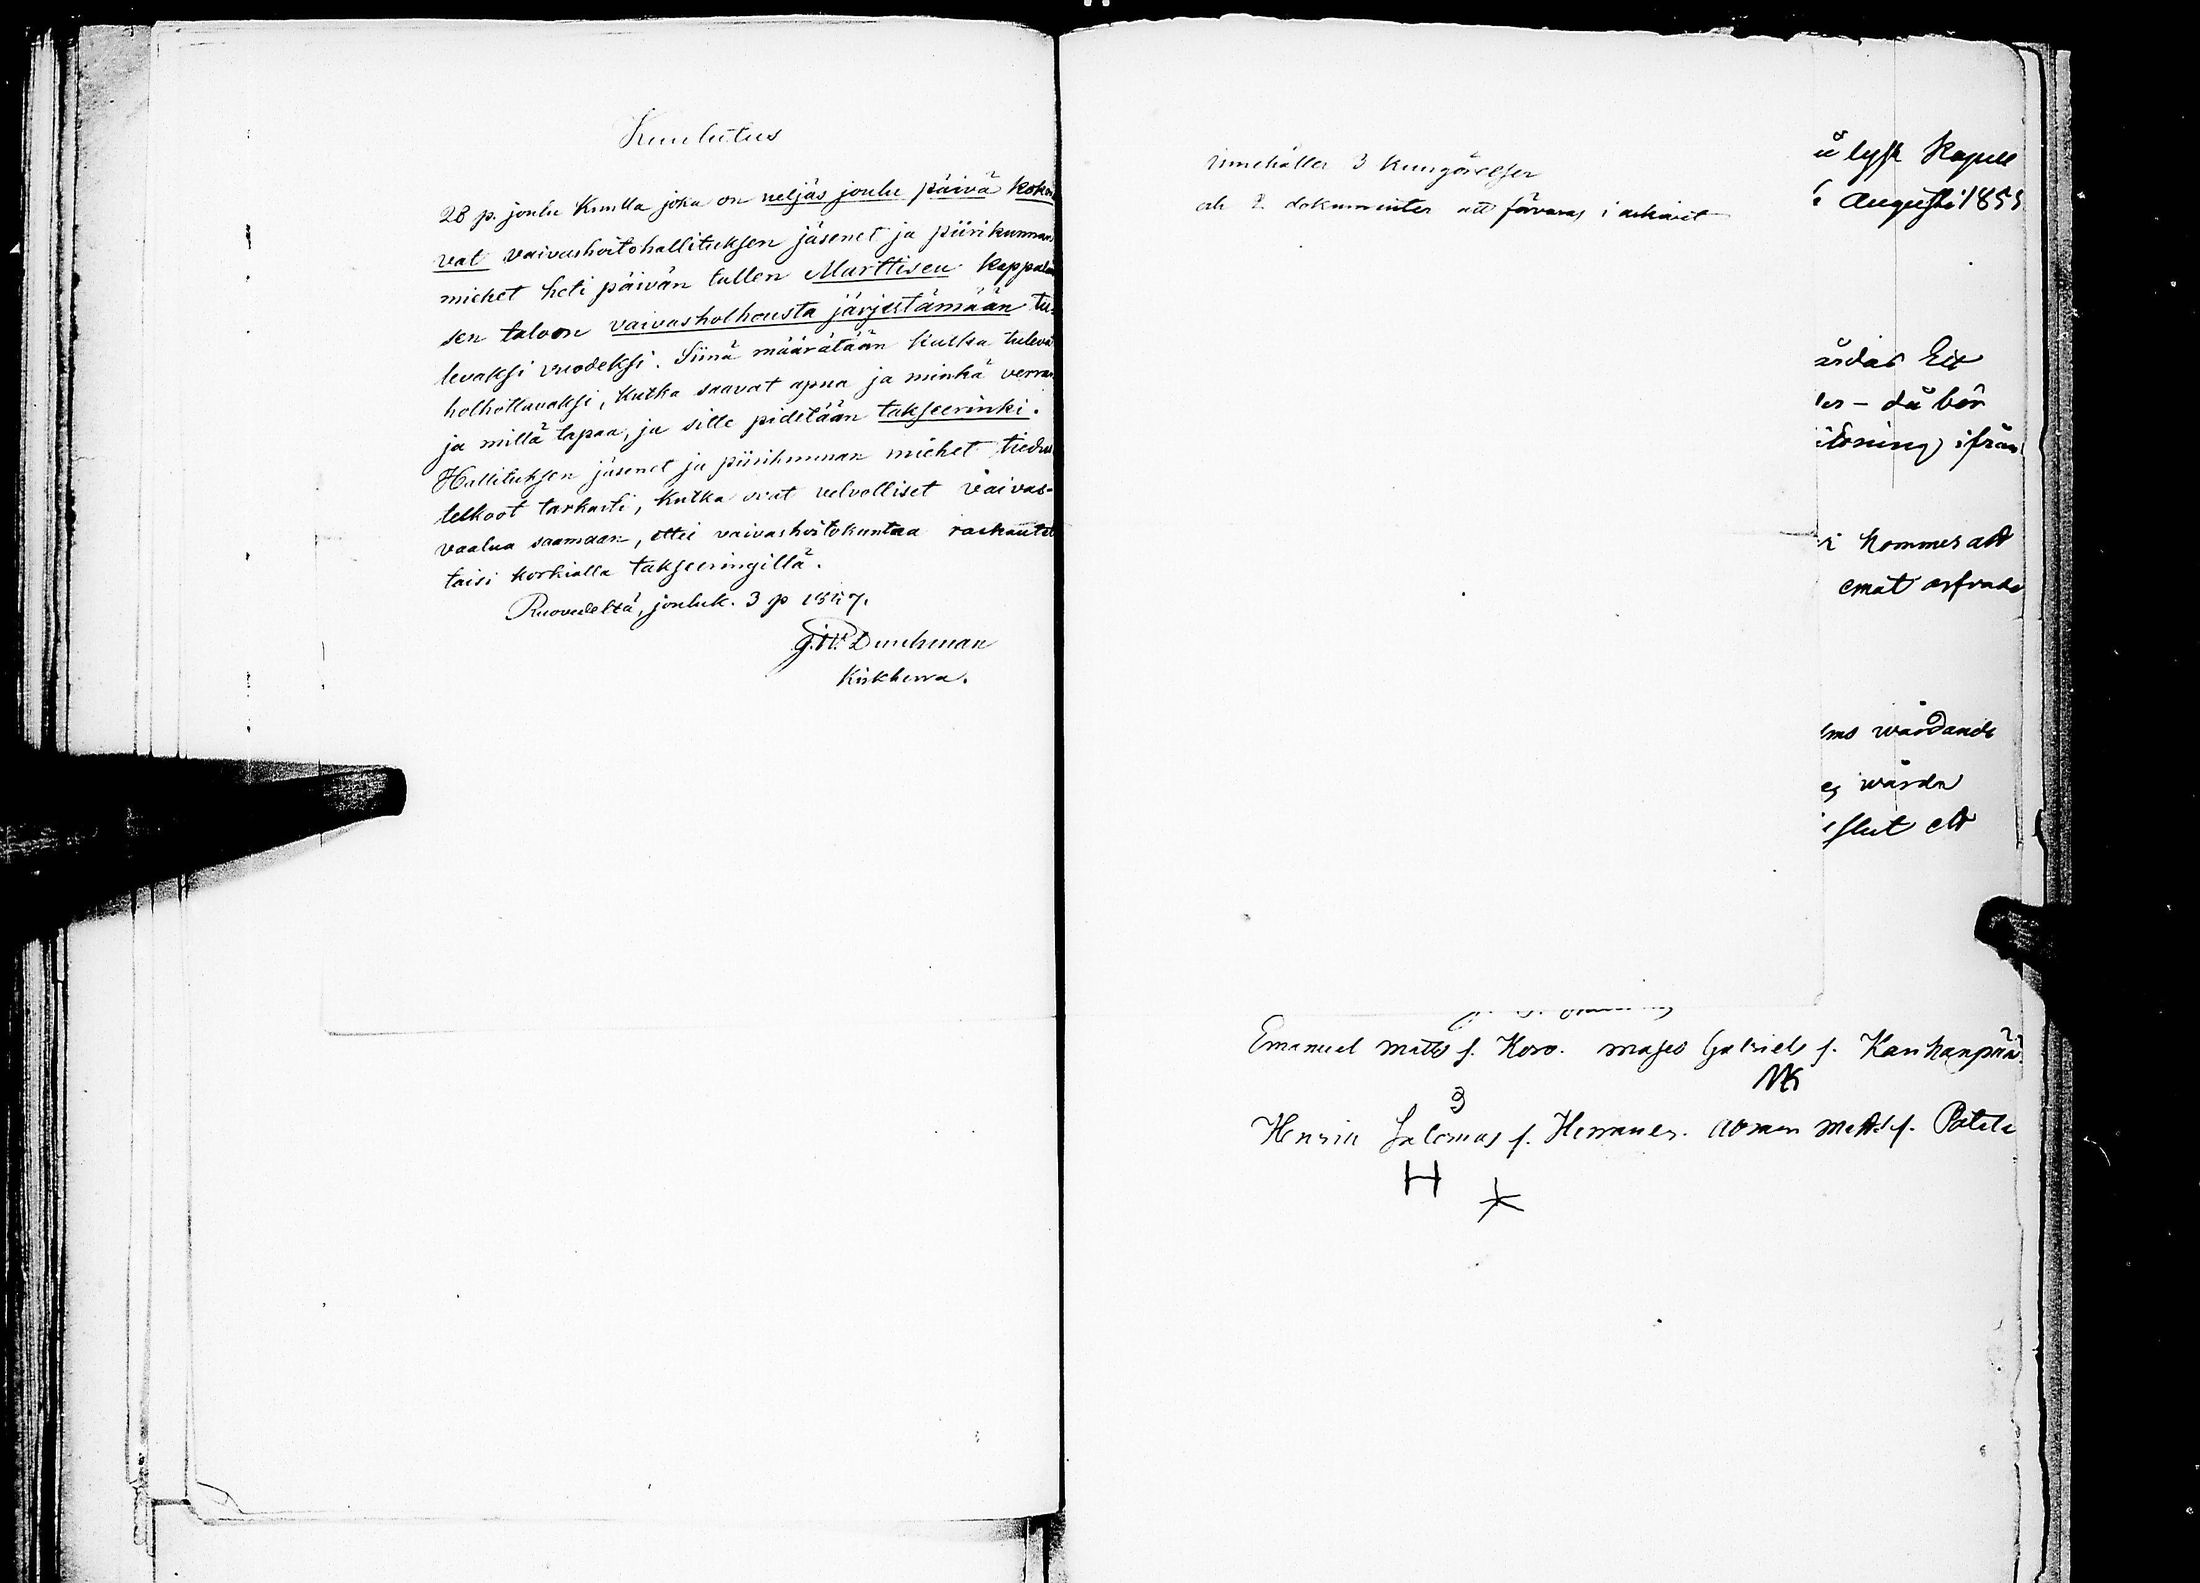 Kuulutus
28 p. joulu Kuulla joka on neljäs joulu päivä koko
vat vaivashoitohallituksen jäsenet ja piirikunnan
miehet heti päivän tullen Marttisen kappalai
sen taloon vaivasholhousta järjestämään tu-
levaksi vuodeksi. Siinä määrätään kutka tuleva
holhottavaksi, kutka saavat apua ja minkä verran
ja millä tapaa, ja sille pidetään takseerinki.
Hallituksen jäsenet ja piirikunnan miehet tiedus
telkoot tarkasti, kutka ovat velvolliset vaivas-
vaalua saamaan, ettei vaivashoitokuntaa raskautet
taisi korkialla takseeringillä.
Ruovedeltä, jouluk. 3 p 1857.
Durchman
Kirkherra.
innehåller 3 kungörelser
och 2 dokumenter att förvaras i arkivet
lyst Kapell
Augusti 185
då bör
ifrån
kommer att
wårdande
wårda
slut att
Emanuel Matts s. Koro. Moses Gabriels s. Kauhanpää
3 MK
Henric Salomos s. Hermanes. Adman Matts s. Patala
H